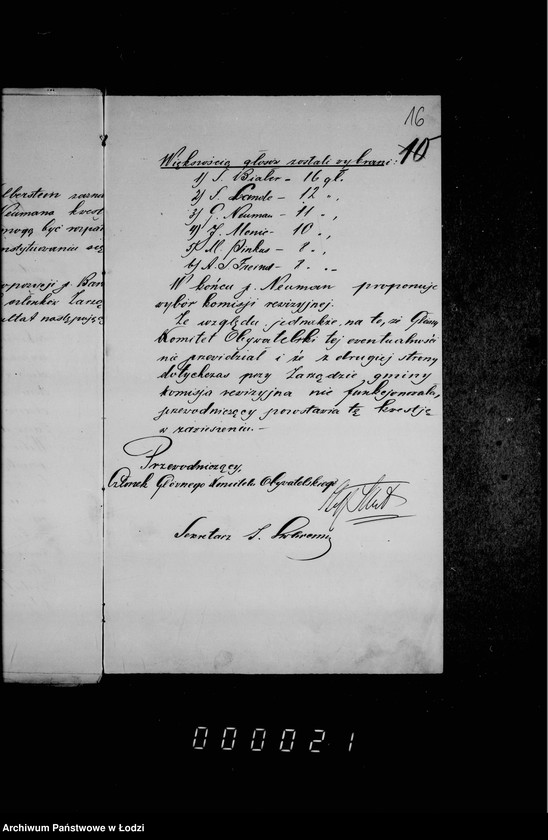 16
10
Większością głosów zostali wybrani:
1) S. Bialer – 16 gł.
2) S. Lande – 12 „ „
3) G. Neuman – 11 „ „
4) J. Monic – 10 „ „
5) M. Pinkus – 8 „ „
6) A. S. Freund – 8 „ „
W końcu p. Neuman proponuje
wybór komisji rewizyjnej.
Ze względu jednakże na to, że Główny
Komitet Obywatelski tej ewentualności
nie przewidział i że z drugiej strony
dotychczas przy Zarządzie gminy
komisja rewizyjna nie funkcjonowała,
przewodniczący pozostawia tę kwestję
w zawieszeniu. –
Przewodniczący,
Członek Głównego Komitetu Obywatelskiego
Sekretarz S.
lberstein zazna
Neumana kwest
mogą być rozpa
nstytuowaniu się
opozycji p. Bar
członków Zarzą
ultat następując
000021
Archiwum Państwowe w Łodzi